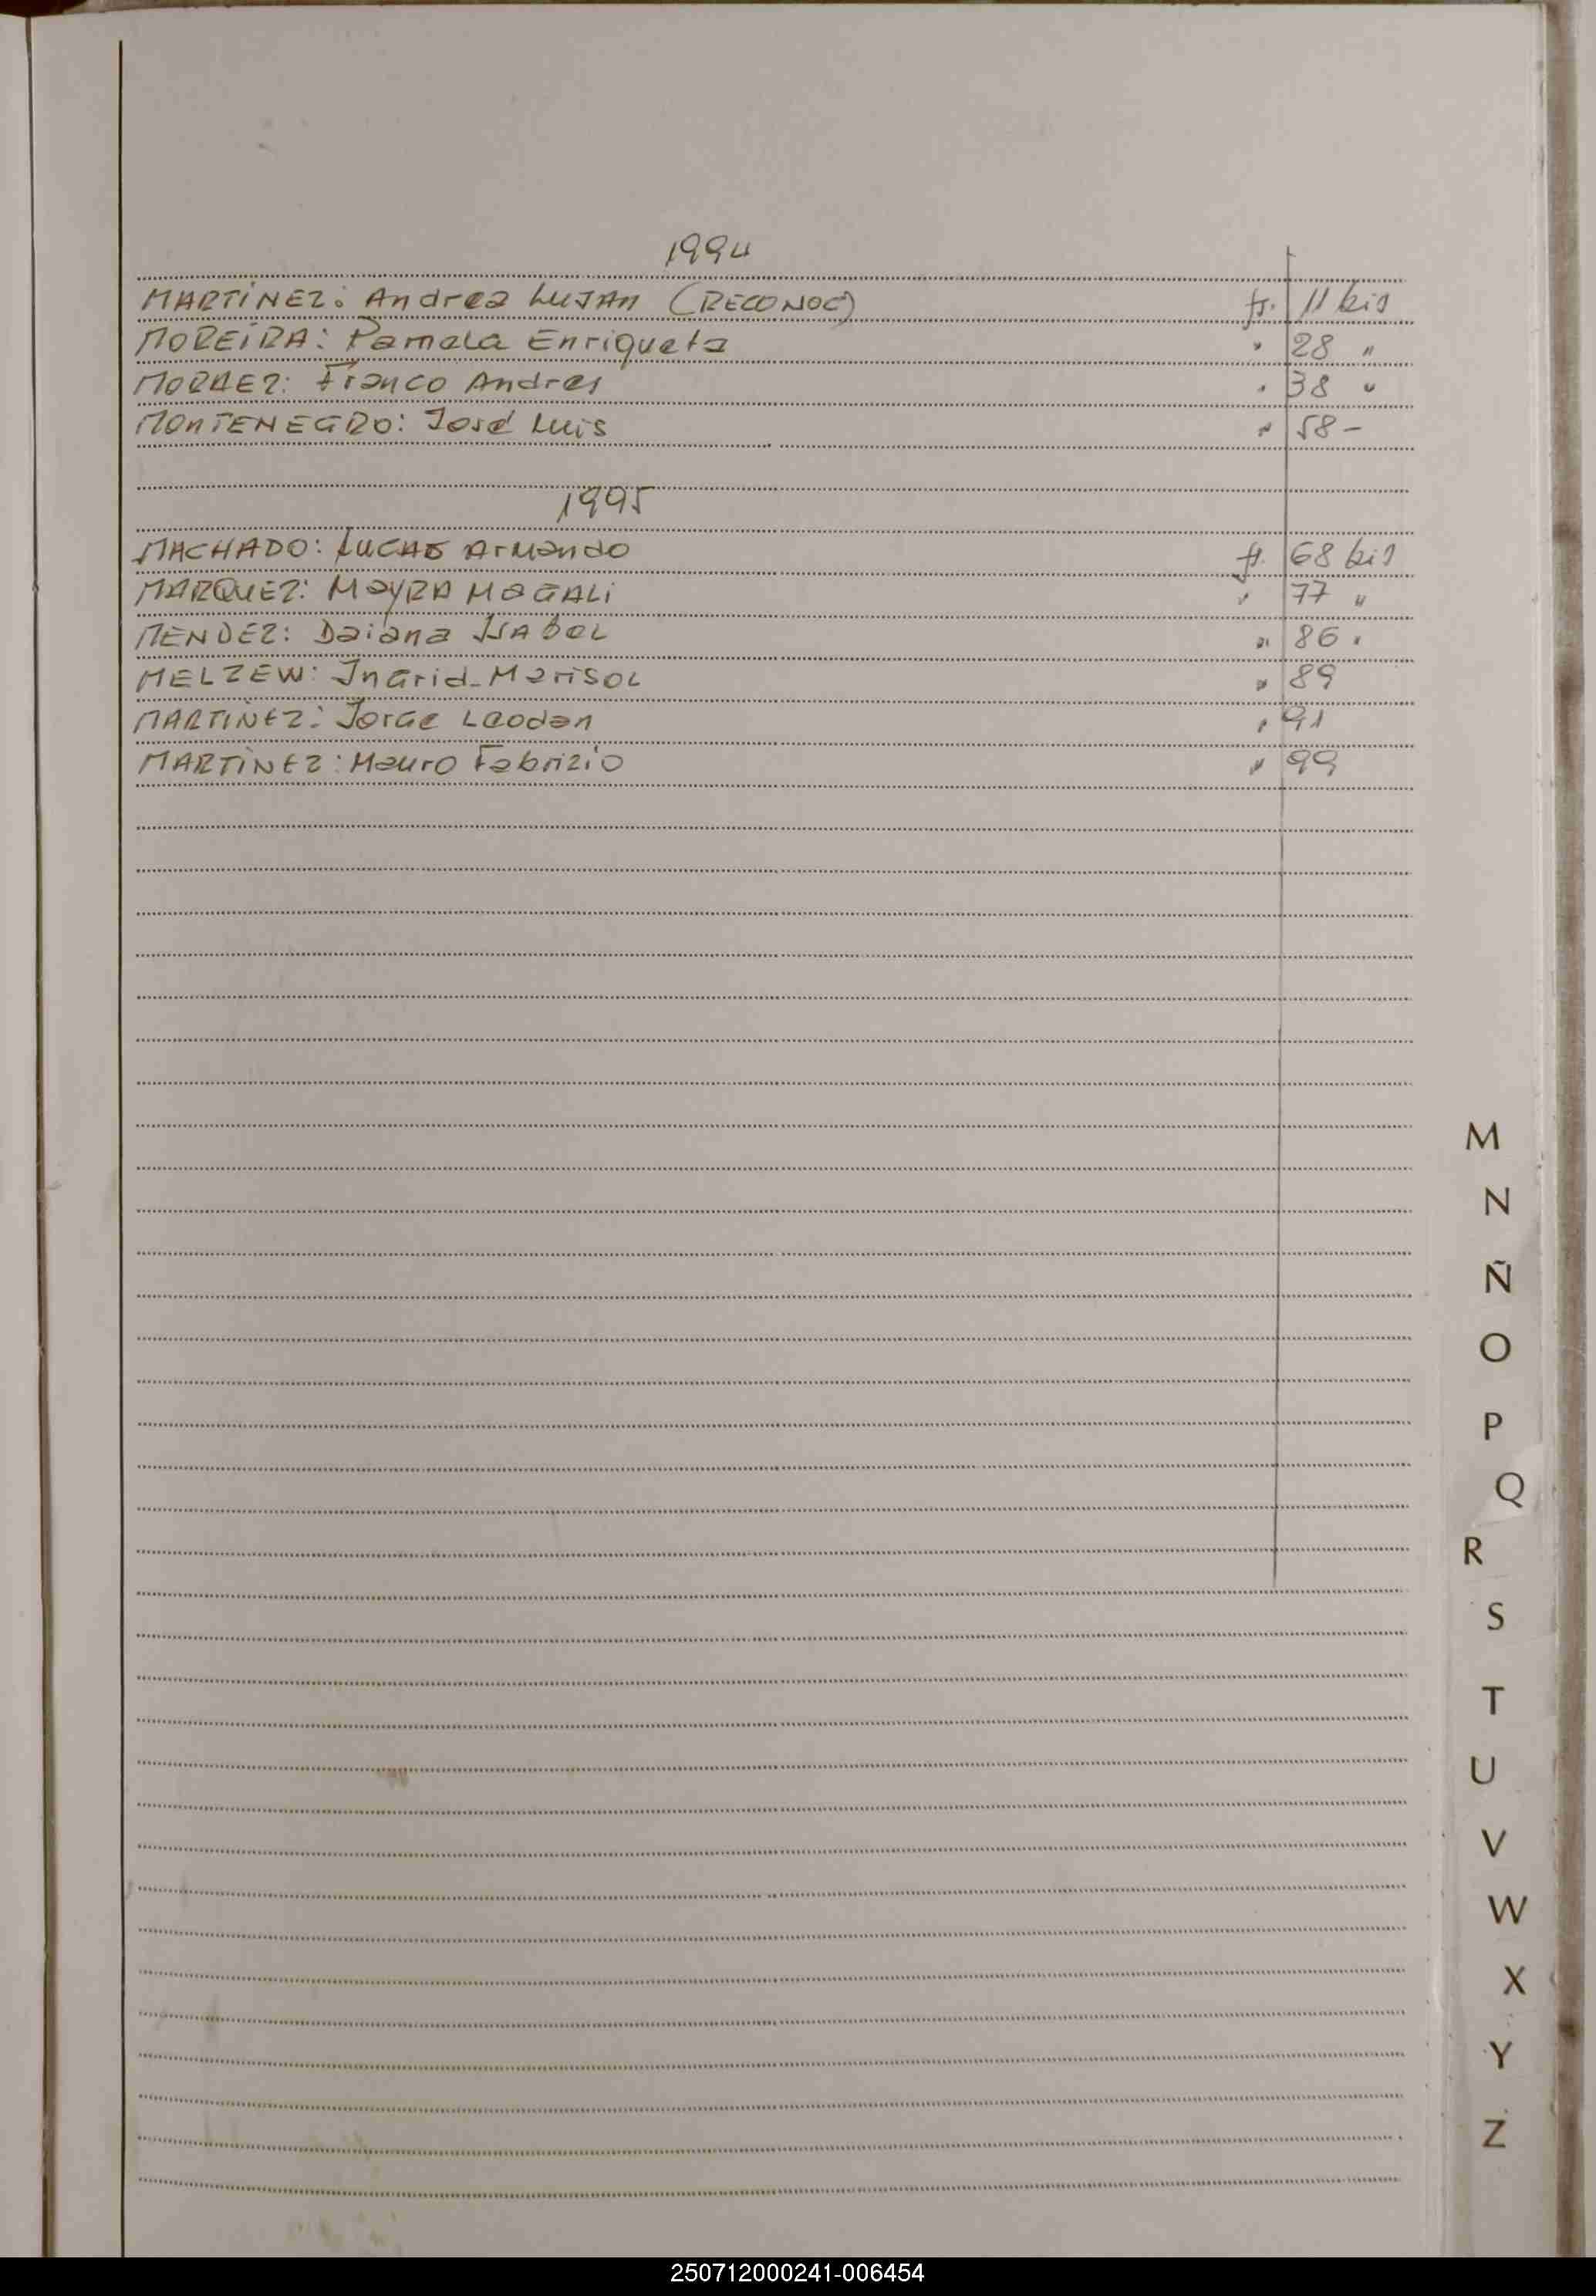 1994
MARTÍNEZ: Andrea LUJAN (RECONOC) fs. 11 bis
MOREÍRA: Pamela Enriqueta " 28 "
Franco Andres " 38 "
MONTENEGRO: José Luis " 58 -
1995
MACHADO: LUCAS Armando fs. 68 bis
MARQUEZ: MayRA MaGALi " 77 "
MENDEZ: Daiana ISABEL " 86 "
MELZEW: InGrid Marisol " 89
MARTINEZ: JorGe " 91
MARTÍNEZ: Mauro Fabrizio " 99
M
N
Ñ
O
P
Q
R
S
T
U
V
W
X
Y
Z
250712000241-006454